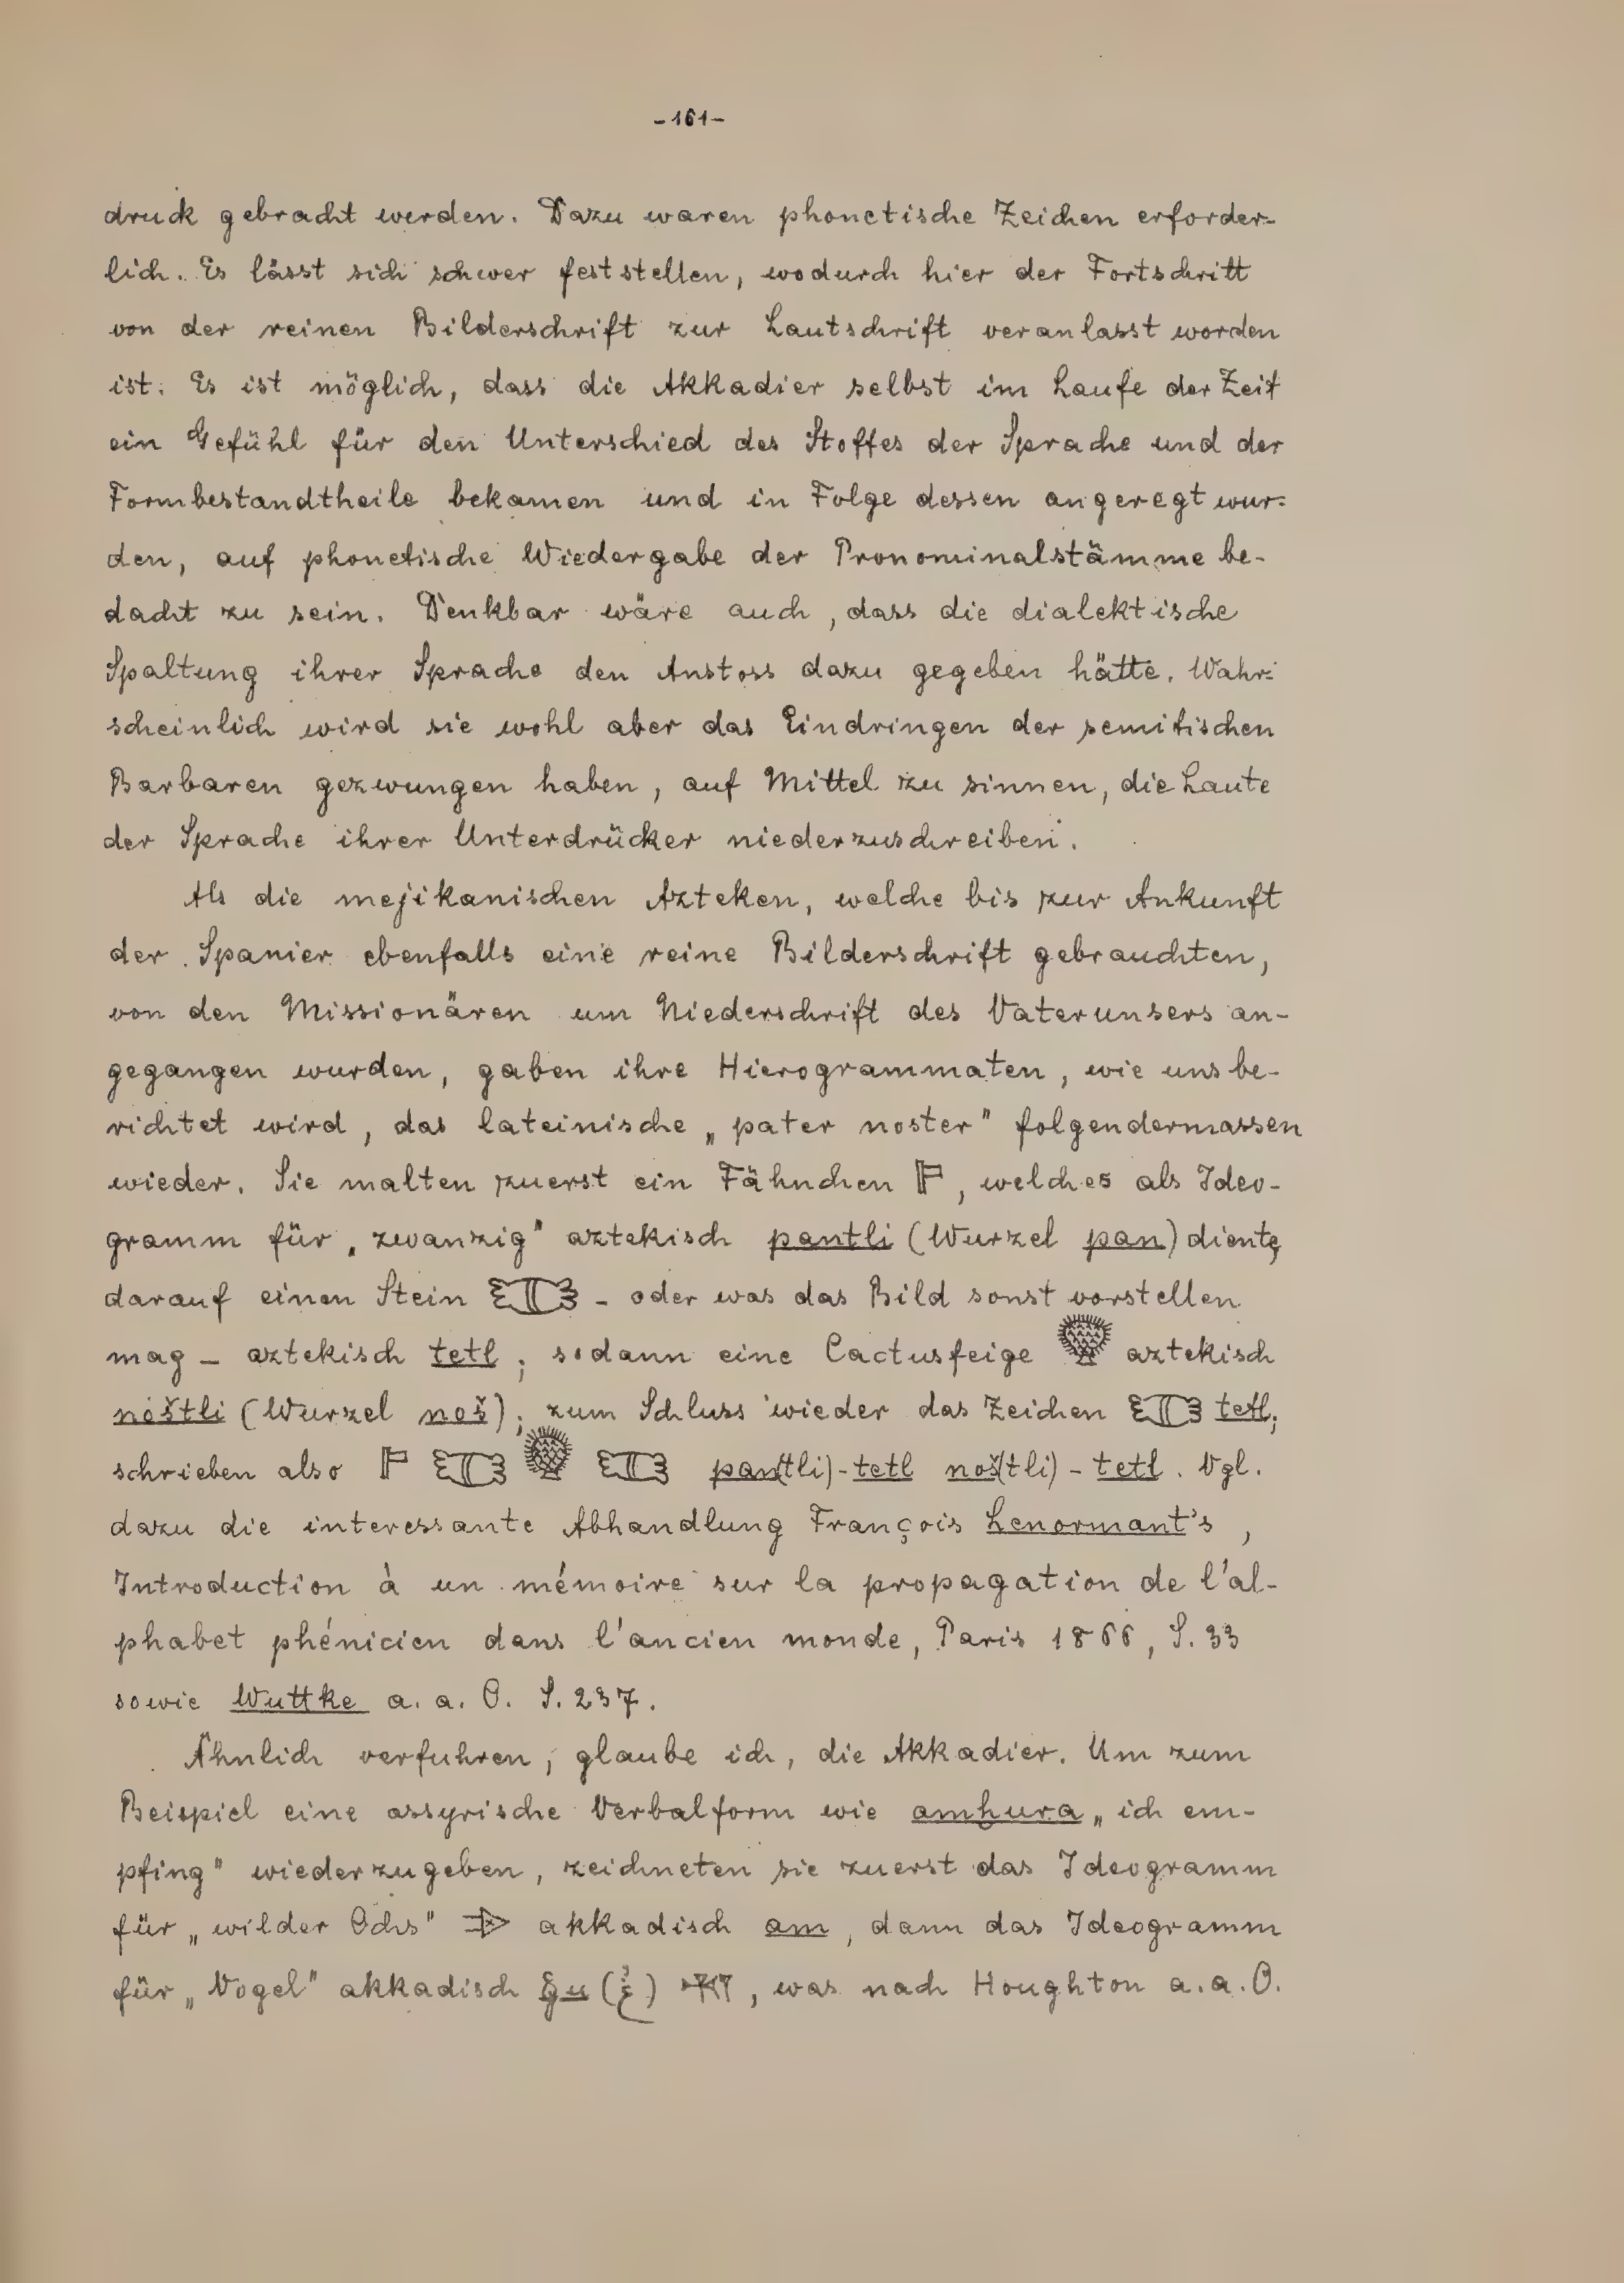 -161-
druck gebracht werden. Dazu waren phonetische Zeichen erforder-
lich. Es lässt sich schwer feststellen, wodurch hier der Fortschritt
von der reinen Bilderschrift zur Lautschrift veranlasst worden
ist. Es ist möglich, dass die Akkadier selbst im Laufe der Zeit
ein Gefühl für den Unterschied des Stoffes der Sprache und der
Formbestandtheile bekamen und in Folge dessen angeregt wur-
den, auf phonetische Wiedergabe der Pronominalstämme be-
dacht zu sein. Denkbar wäre auch, dass die dialektische
Spaltung ihrer Sprache den Anstoss dazu gegeben hätte. Wahr-
scheinlich wird sie wohl aber das Eindringen der semitischen
Barbaren gezwungen haben, auf Mittel zu sinnen, die Laute
der Sprache ihrer Unterdrücker niederzuschreiben.
Als die mejikanischen Azteken, welche bis zur Ankunft
der Spanier ebenfalls eine reine Bilderschrift gebrauchten,
von den Missionären um Niederschrift des Vaterunsers an-
gegangen wurden, gaben ihre Hierogrammaten, wie uns be-
richtet wird, das lateinische „pater noster" folgendermassen
wieder. Sie malten zuerst ein Fähnchen , welches als Ideo-
gramm für „zwanzig" aztekisch pantli (Wurzel pan) diente,
darauf einen Stein – oder was das Bild sonst vorstellen
mag – aztekisch tetl; sodann eine Cactusfeige aztekisch
noštli (Wurzel noš); zum Schluss wieder das Zeichen tetl;
schrieben also pan(tli)-tetl noš(tli)-tetl. Vgl.
dazu die interessante Abhandlung François Lenormant's,
Introduction à un mémoire sur la propagation de l'al-
phabet phénicien dans l'ancien monde, Paris 1866, S. 33
sowie Wuttke a. a. O. S. 237.
Ähnlich verfuhren, glaube ich, die Akkadier. Um zum
Beispiel eine assyrische Verbalform wie amḫura „ich em-
pfing" wiederzugeben, zeichneten sie zuerst das Ideogramm
für „wilder Ochs" akkadisch am, dann das Ideogramm
für „Vogel" akkadisch , was nach Houghton a. a. O.